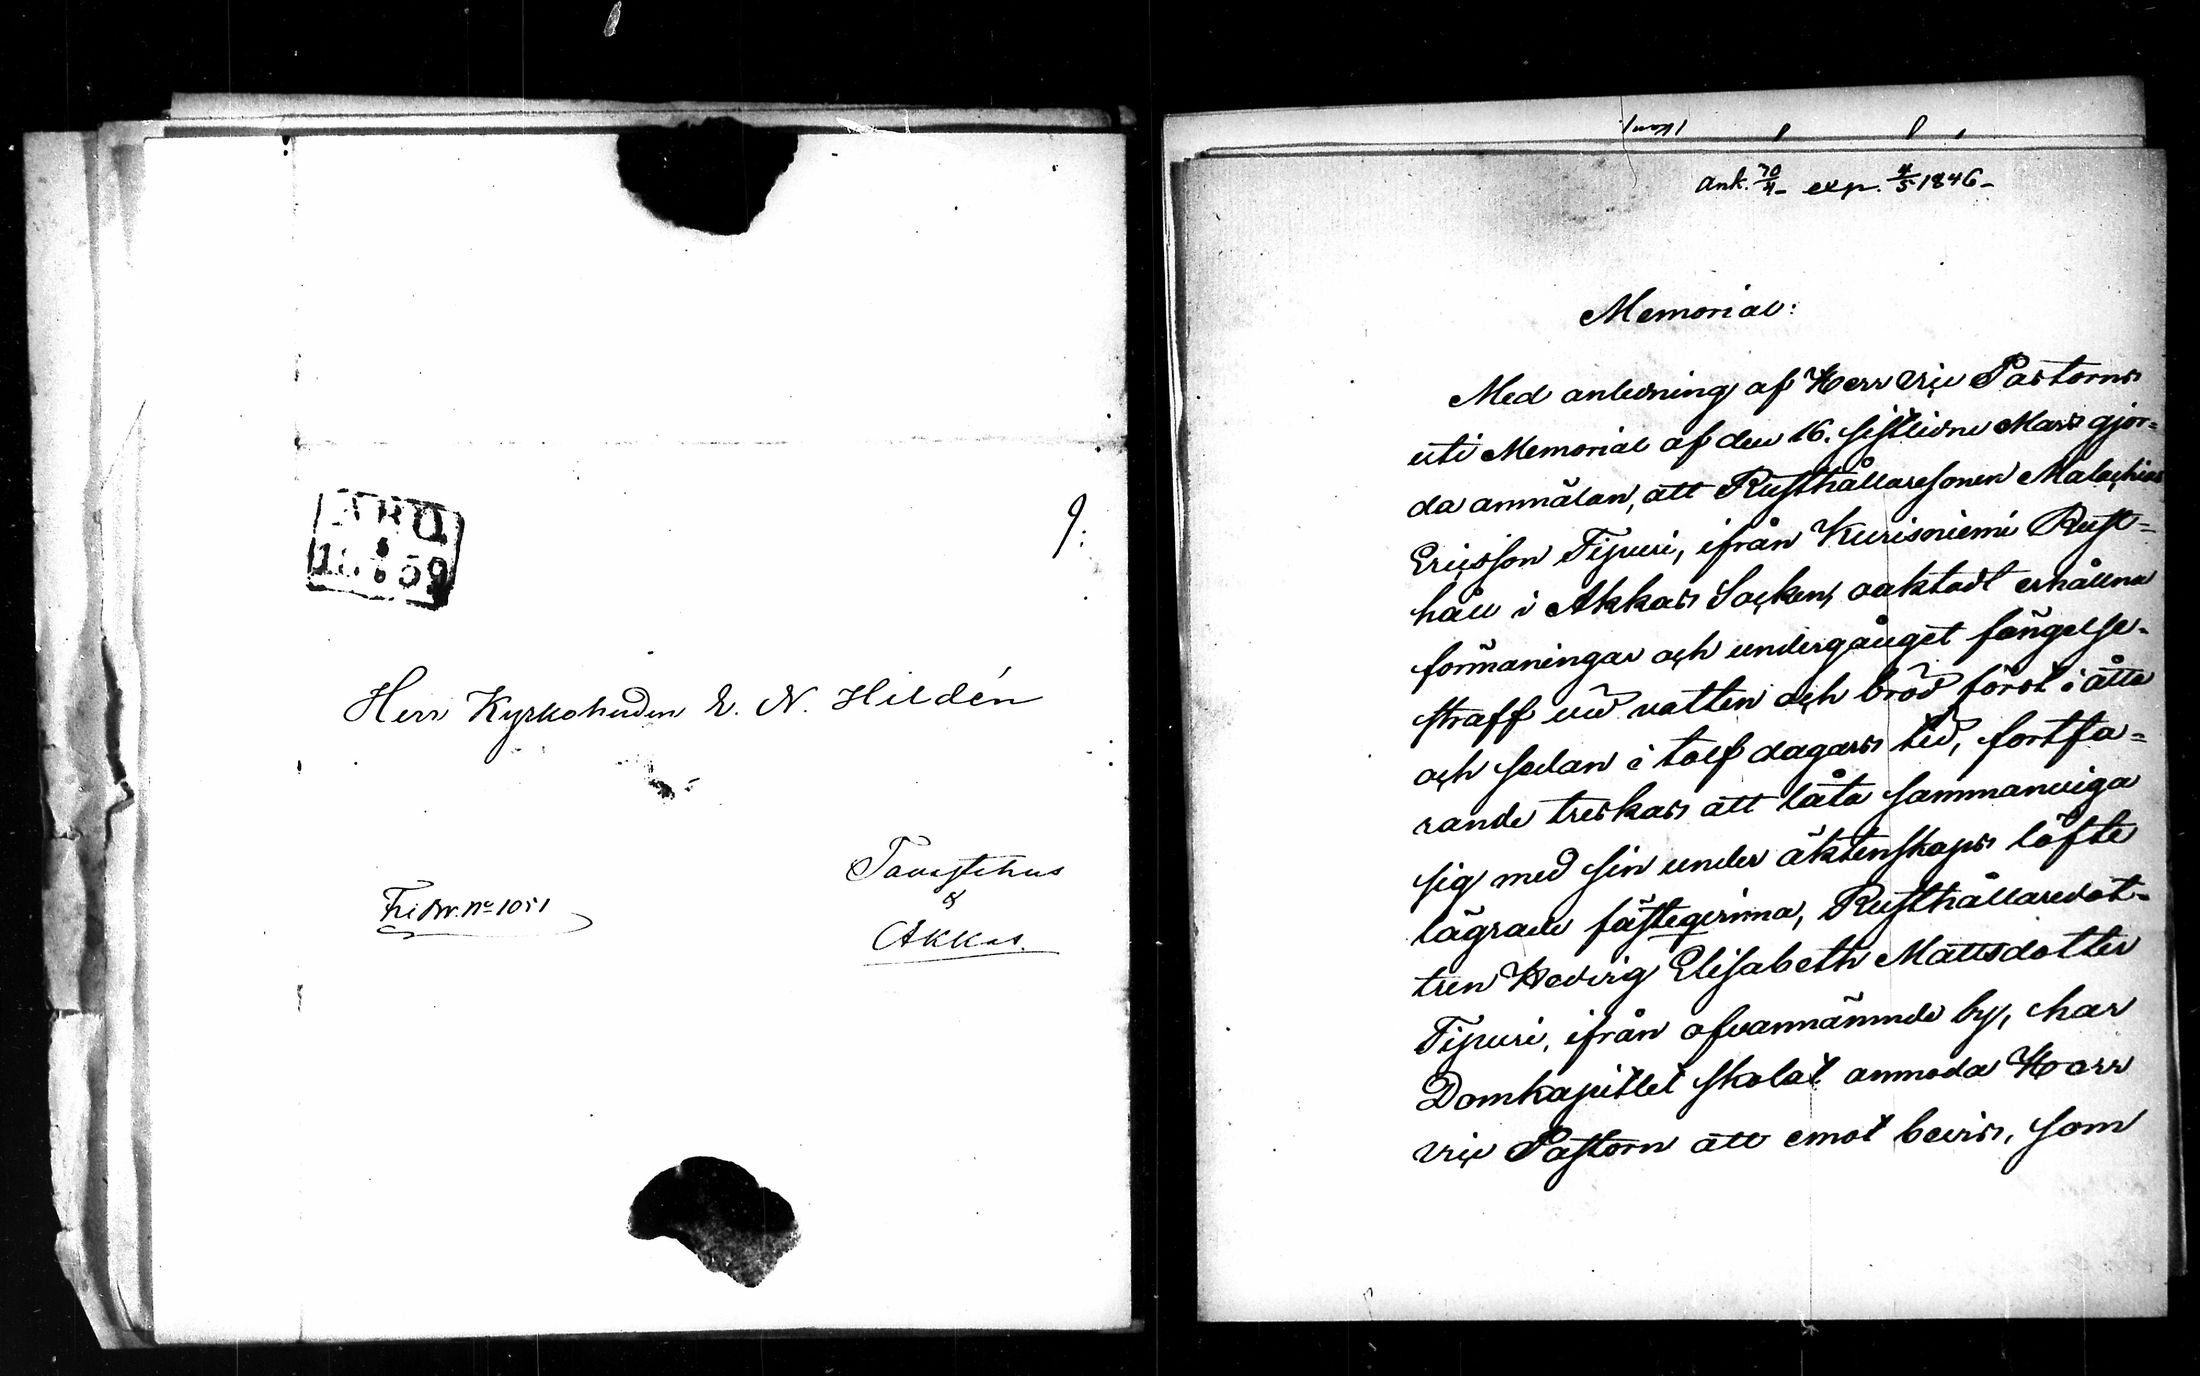 9.
Herr Kyrkoherden E. N. Hildén
Tavastehus
&
Fri Br. No 1051
Akkas.
Ank. 30/4 - exp. 4/5 1846 -
Memorial:
Med anledning af Herr Vice Pastorns
uti Memorial af den 16. sistlidne Mars gjor=
da anmälan, att Rusthållaresonen Malachias
Ericsson Tipuri, ifrån Kurisniemi Rust=
håll i Akkas Socken, oaktadt erhållna
förmaningar och undergånget fängelse-
straff vid vatten och bröd först i åtta
och sedan i tolf dagars tid, fortfa=
rande treskas att låta sammanviga
sig med sin under äktenskaps löfte
lägrade fästeqvinna, Rusthållaredot=
tren Hedvig Elisabeth Mattsdotter
Tipuri, ifrån ofvannämnde by, har
Domkapitlet skolat anmoda Herr
Vice Pastorn att emot bevis, som